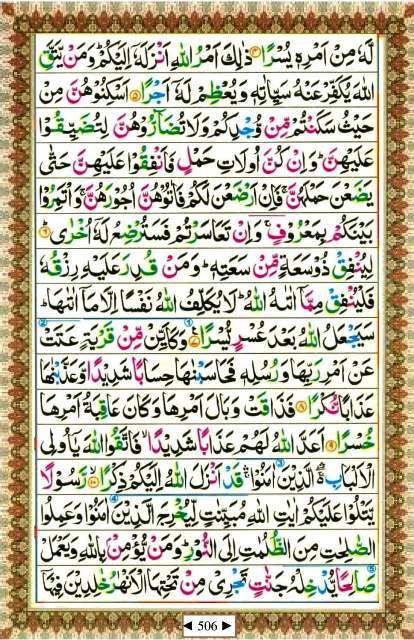 لَّهٗ مِنْ اَمْرِهٖ يُسْرًا ۴ ذٰلِكَ اَمْرُ اللّٰهِ اَنْزَلَهٗۤ اِلَيْكُمْ ؕ وَمَنْ يَّتَّقِ
اللّٰهَ يُكَفِّرْ عَنْهُ سَيِّاٰتِهٖ وَيُعْظِمْ لَهٗۤ اَجْرًا ۵ اَسْكِنُوْهُنَّ مِنْ
حَيْثُ سَكَنْتُمْ مِّنْ وُّجْدِكُمْ وَلَا تُضَآرُّوْهُنَّ لِتُضَيِّقُوْا
عَلَيْهِنَّ ؕ وَاِنْ كُنَّ اُولَاتِ حَمْلٍ فَاَنْفِقُوْا عَلَيْهِنَّ حَتّٰى
يَضَعْنَ حَمْلَهُنَّ ۚ فَاِنْ اَرْضَعْنَ لَكُمْ فَاٰتُوْهُنَّ اُجُوْرَهُنَّ ۚ وَاْتَمِرُوْا
بَيْنَكُمْ بِمَعْرُوْفٍ ۚ وَاِنْ تَعَاسَرْتُمْ فَسَتُرْضِعُ لَهٗۤ اُخْرٰى ۶
لِيُنْفِقْ ذُوْ سَعَةٍ مِّنْ سَعَتِهٖ ؕ وَمَنْ قُدِرَ عَلَيْهِ رِزْقُهٗ
فَلْيُنْفِقْ مِمَّاۤ اٰتٰىهُ اللّٰهُ ؕ لَا يُكَلِّفُ اللّٰهُ نَفْسًا اِلَّا مَاۤ اٰتٰىهَا ؕ
سَيَجْعَلُ اللّٰهُ بَعْدَ عُسْرٍ يُّسْرًا ۷ وَكَاَيِّنْ مِّنْ قَرْيَةٍ عَتَتْ
عَنْ اَمْرِ رَبِّهَا وَرُسُلِهٖ فَحَاسَبْنٰهَا حِسَابًا شَدِيْدًا وَّعَذَّبْنٰهَا
عَذَابًا نُّكْرًا ۸ فَذَاقَتْ وَبَالَ اَمْرِهَا وَكَانَ عَاقِبَةُ اَمْرِهَا
خُسْرًا ۹ اَعَدَّ اللّٰهُ لَهُمْ عَذَابًا شَدِيْدًا ۙ فَاتَّقُوا اللّٰهَ يٰۤاُولِى
الْاَلْبَابِ ۛۖۚ الَّذِيْنَ اٰمَنُوْا ۛؕ قَدْ اَنْزَلَ اللّٰهُ اِلَيْكُمْ ذِكْرًا ۱۰ رَّسُوْلًا
يَّتْلُوْا عَلَيْكُمْ اٰيٰتِ اللّٰهِ مُبَيِّنٰتٍ لِّيُخْرِجَ الَّذِيْنَ اٰمَنُوْا وَعَمِلُوا
الصّٰلِحٰتِ مِنَ الظُّلُمٰتِ اِلَى النُّوْرِ ؕ وَمَنْ يُّؤْمِنْۢ بِاللّٰهِ وَيَعْمَلْ
صَالِحًا يُّدْخِلْهُ جَنّٰتٍ تَجْرِىْ مِنْ تَحْتِهَا الْاَنْهٰرُ خٰلِدِيْنَ فِيْهَاۤ
◄ 506 ►